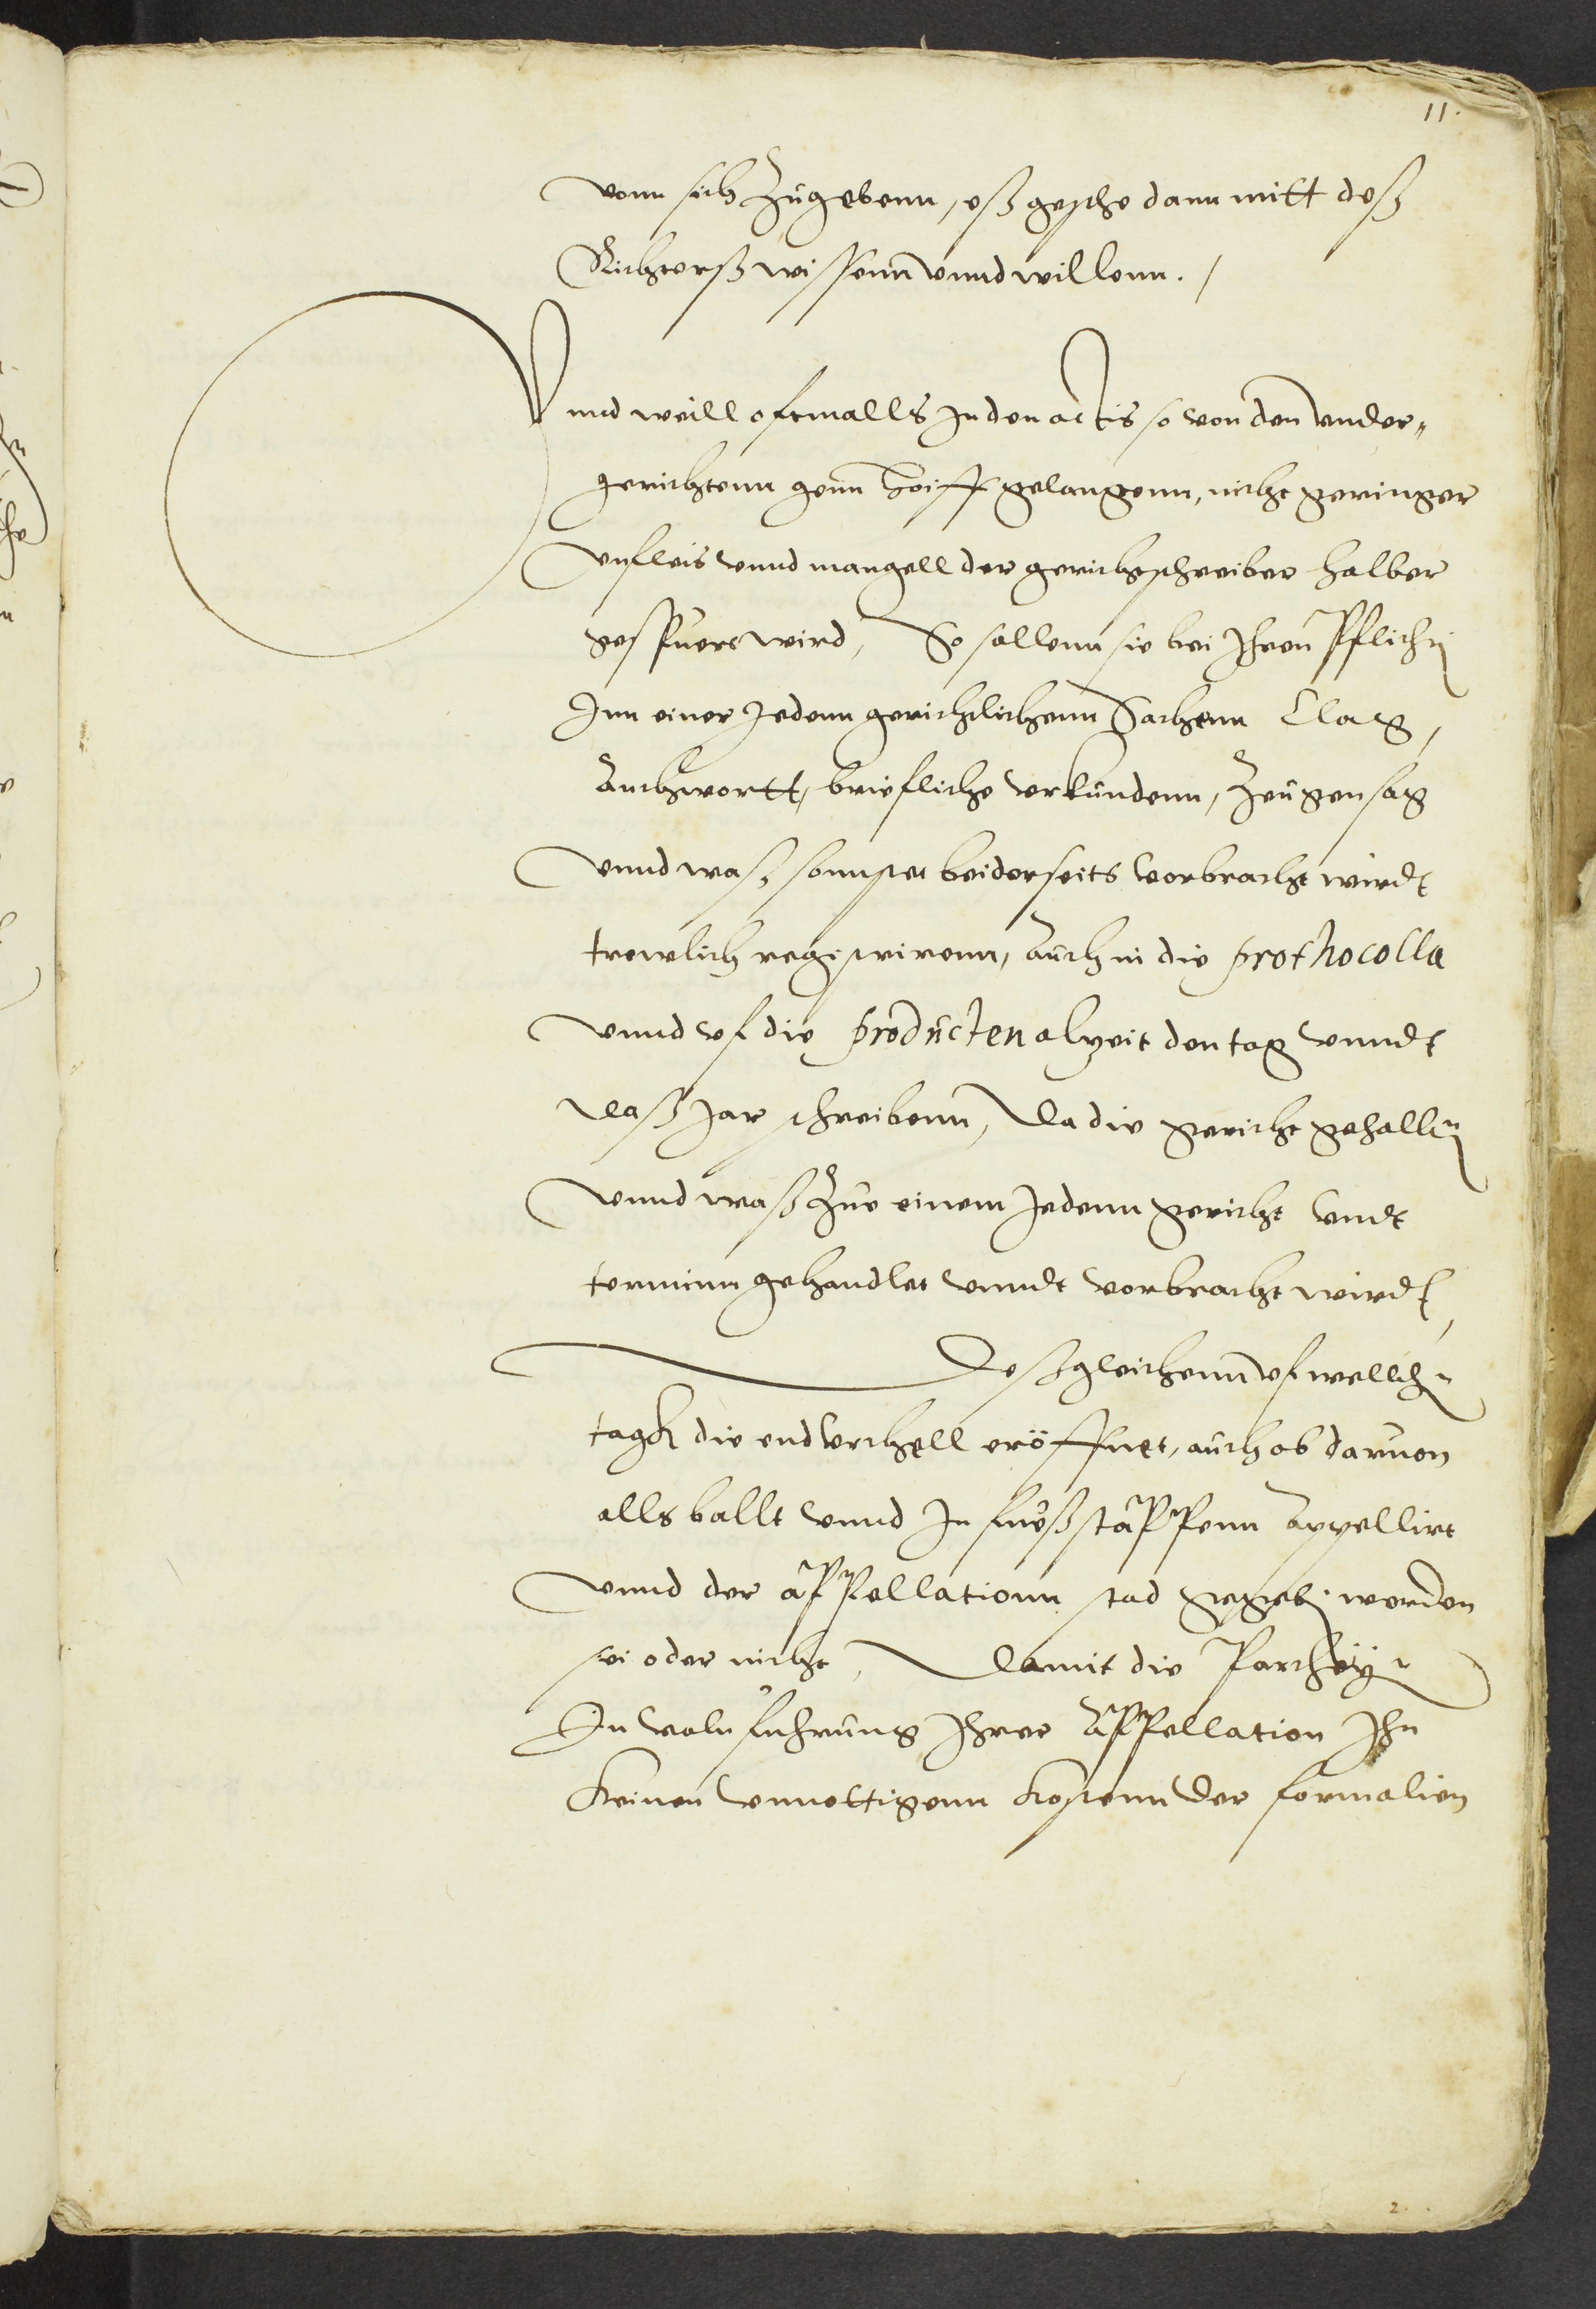 11.
vonn sich zugebenn, eß geschе dann mitt deß
Richterß wissenn vnnd willenn. /
Vnnd weill oftmalls In den actis so von den vnder„
gerichtenn genn hoiff gelangenn, nicht geringer
vnfleis vnnd mangell der gerichtschreiber halber
gespuert wird, So sollenn sie bei Ihren Pflichtn
Inn einer Jedenn gerichtlichenn Sachenn Clag,
Anthwortt, briefliche vrkundenn, Zeugen sag
vnnd waß sonnsten beiderseits vorbracht wirdt
trewlich registrirenn, auch in die prothocolla
vnnd vf die producten alzeit den tag vnndt
daß Jar schreibenn, da die gericht gehalltn
vnnd waß Zue einem Jedenn gericht vndt
terminn gehandlet vnndt vorbracht wirdt,
Deßgleichenn vf wellchn
tagk die endvrthell eröffnet, auch ob daruon
alls ballt vnnd In fueßstappenn Appellirt
vnnd der appellationn stad gegebn werden
sei oder nicht, damit die Partheyn
In volnfuhrung Ihrer Appellation Ihn
Keinen vnnottigenn kostenn der formalien
2.